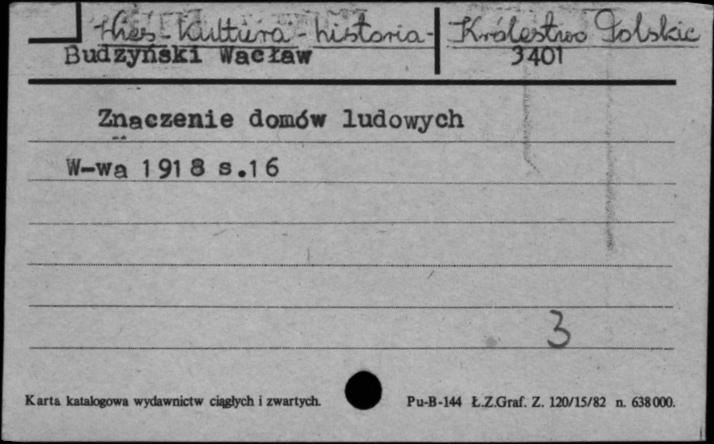 Wieś - Kultura - historia - Królestwo Polskie
Budzyński Wacław 3401
Znaczenie domów ludowych
W-wa 1918 s.16
3
Karta katalogowa wydawnictw ciągłych i zwartych. Pu-B-144 Ł.Z.Graf. Z. 120/15/82 n. 638000.